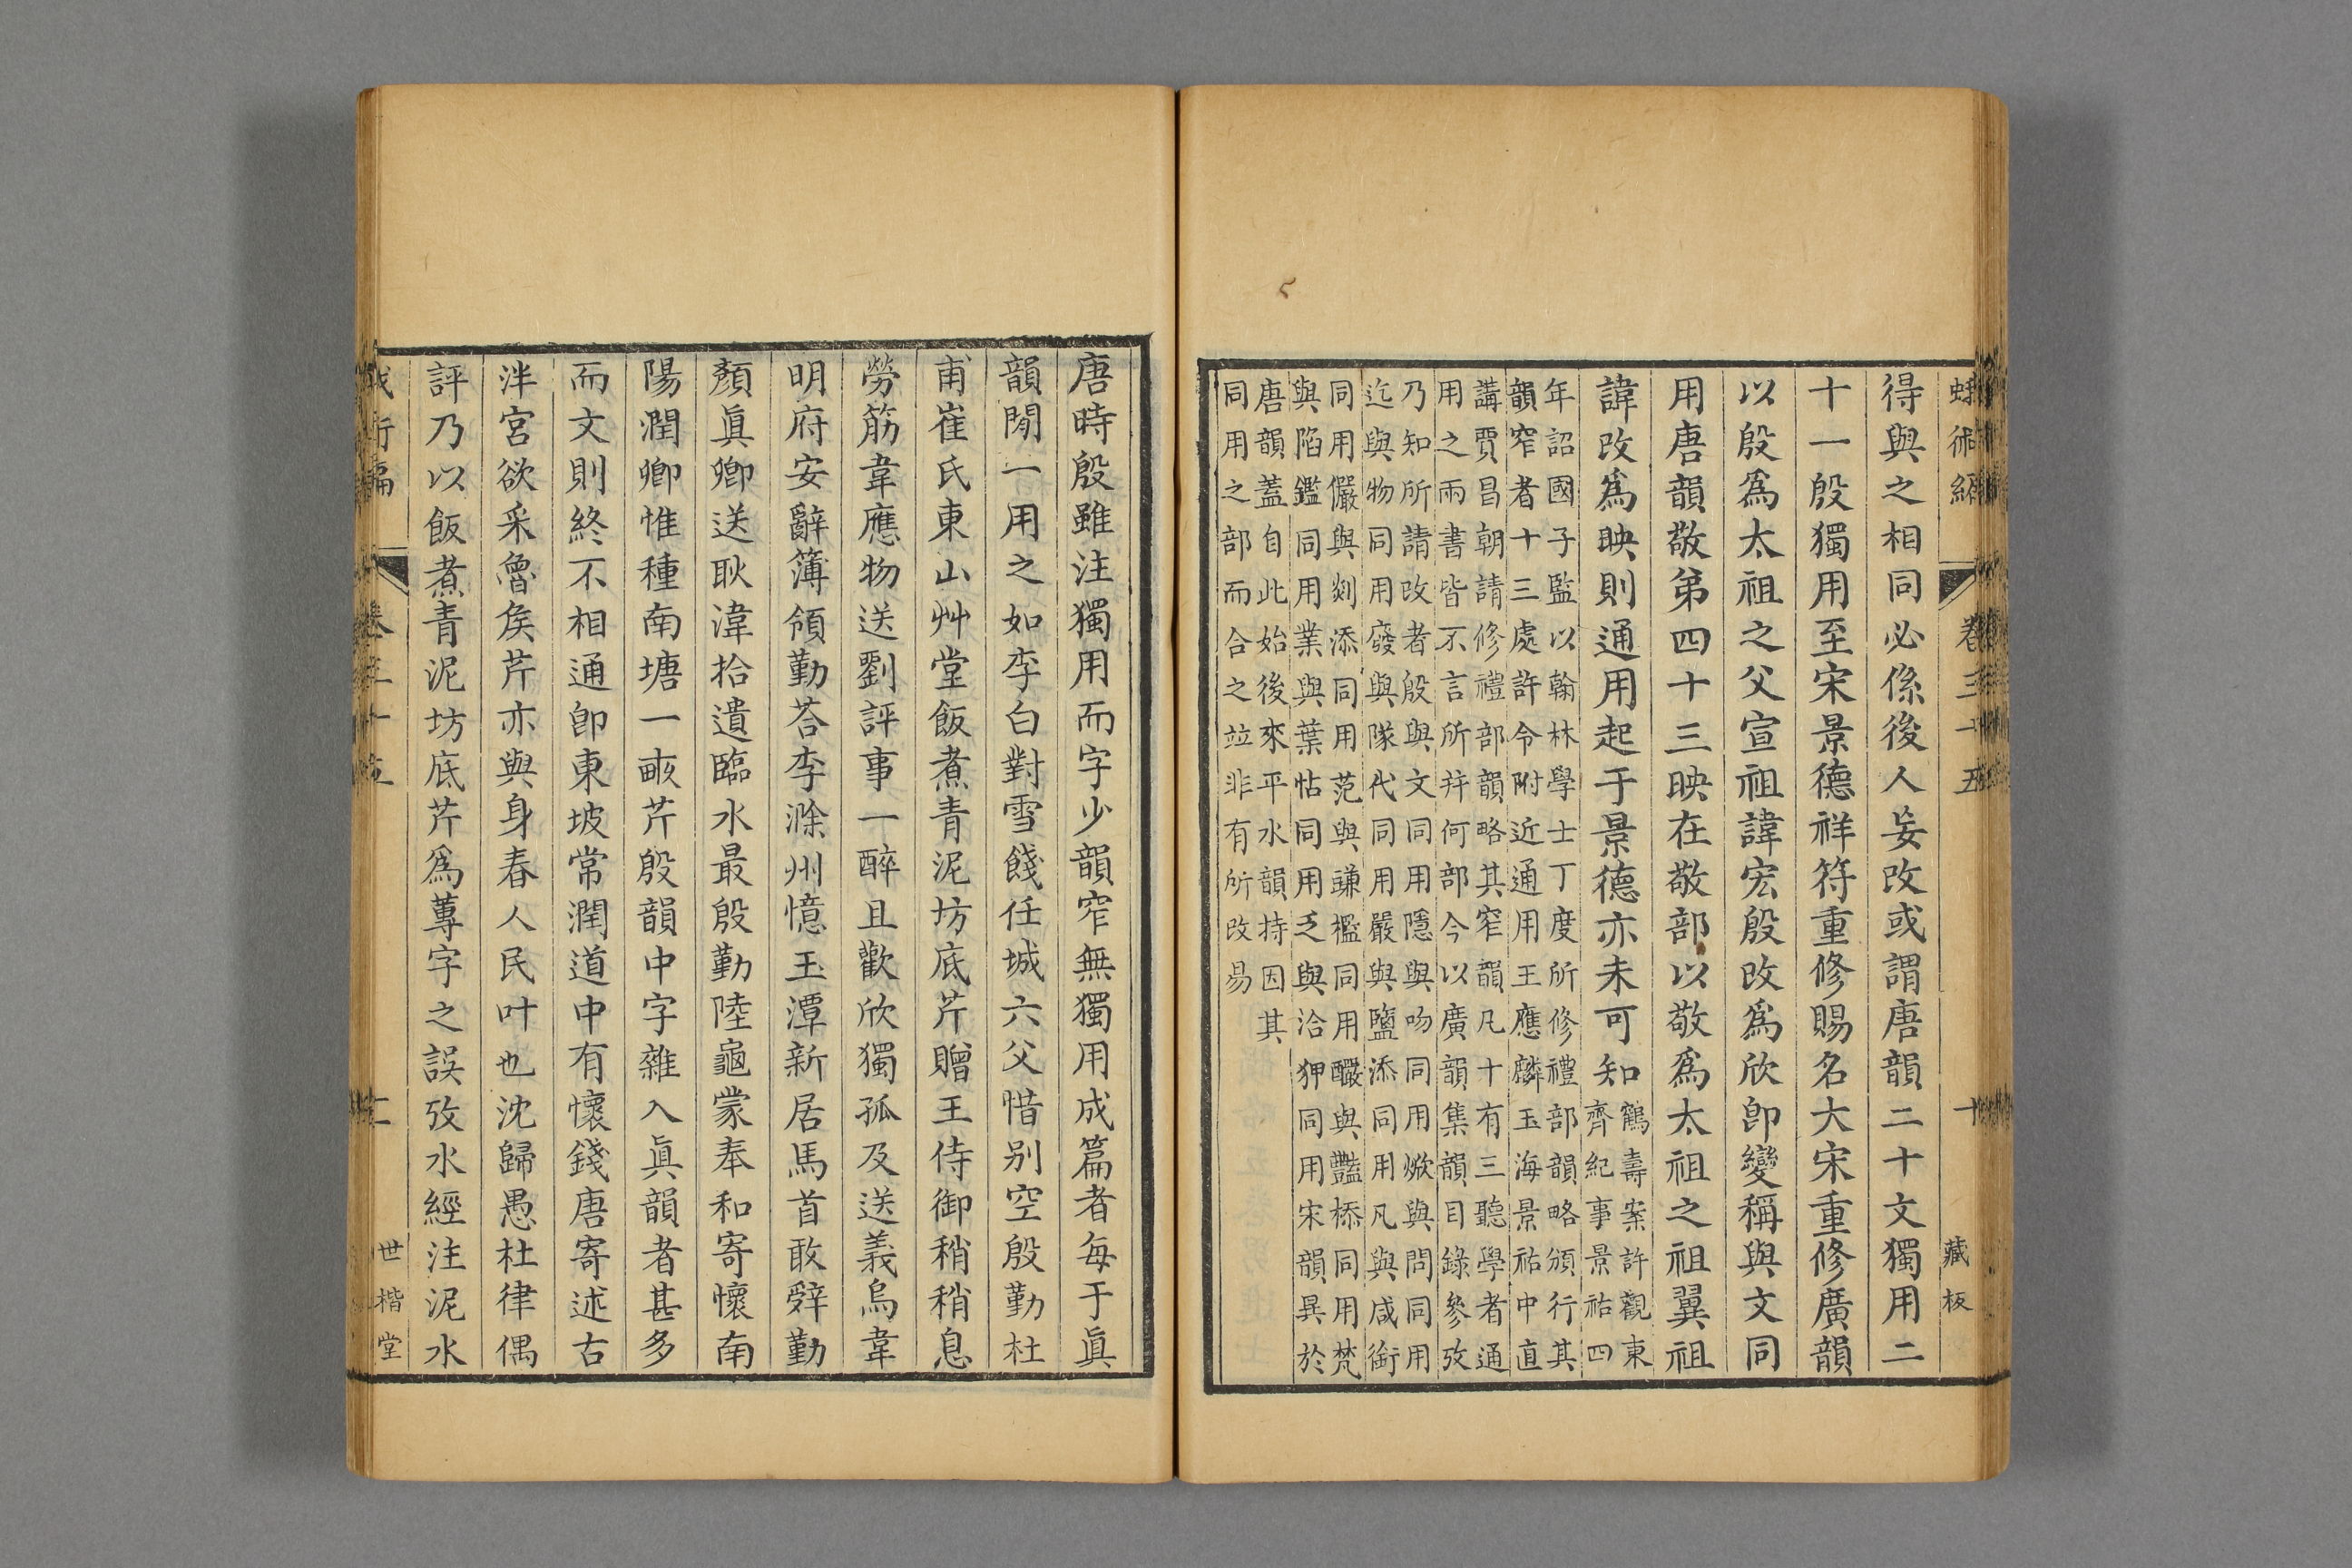 蛾術編 卷三十五 十 藏板
得與之相同必係後人妄改或謂唐韻二十文獨用二
十一殷獨用至宋景德祥符重修賜名大宋重修廣韻
以殷爲太祖之父宣祖諱宏殷改爲欣卽變稱與文同
用唐韻敬弟四十三映在敬部以敬爲太祖之祖翼祖
諱改爲映則通用起于景德亦未可知
鶴壽案許觀東
齊紀事景祐四
年詔國子監以翰林學士丁度所修禮部韻略頒行其
韻窄者十三處許令附近通用王應麟玉海景祐中直
講賈昌朝請修禮部韻略其窄韻凡十有三聽學者通
用之兩書皆不言所幷何部今以廣韻集韻目錄參攷
乃知所請改者殷與文同用隱與吻同用焮與問同用
迄與物同用廢與隊代同用嚴與鹽添同用凡與咸銜
同用儼與剡添同用范與豏檻同用釅與豔㮇同用梵
與陷鑑同用業與葉帖同用乏與洽狎同用宋韻異於
唐韻蓋自此始後來平水韻持因其
同用之部而合之竝非有所改易
唐時殷雖注獨用而字少韻窄無獨用成篇者每于眞
韻閒一用之如李白對雪餞任城六父惜別空殷勤杜
甫崔氏東山艸堂飯煮青泥坊底芹贈王侍御稍稍息
勞筋韋應物送劉評事一醉且歡欣獨孤及送義烏韋
明府安辭簿領勤荅李滁州憶玉潭新居馬首敢辤勤
顏眞卿送耿湋拾遺臨水最殷勤陸龜蒙奉和寄懷南
陽潤卿惟種南塘一畞芹殷韻中字雜入眞韻者甚多
而文則終不相通卽東坡常潤道中有懷錢唐寄述古
泮宮欲采魯矦芹亦與身春人民叶也沈歸愚杜律偶
評乃以飯煮青泥坊底芹爲蓴字之誤攷水經注泥水
蛾術編 卷三十五 世楷堂